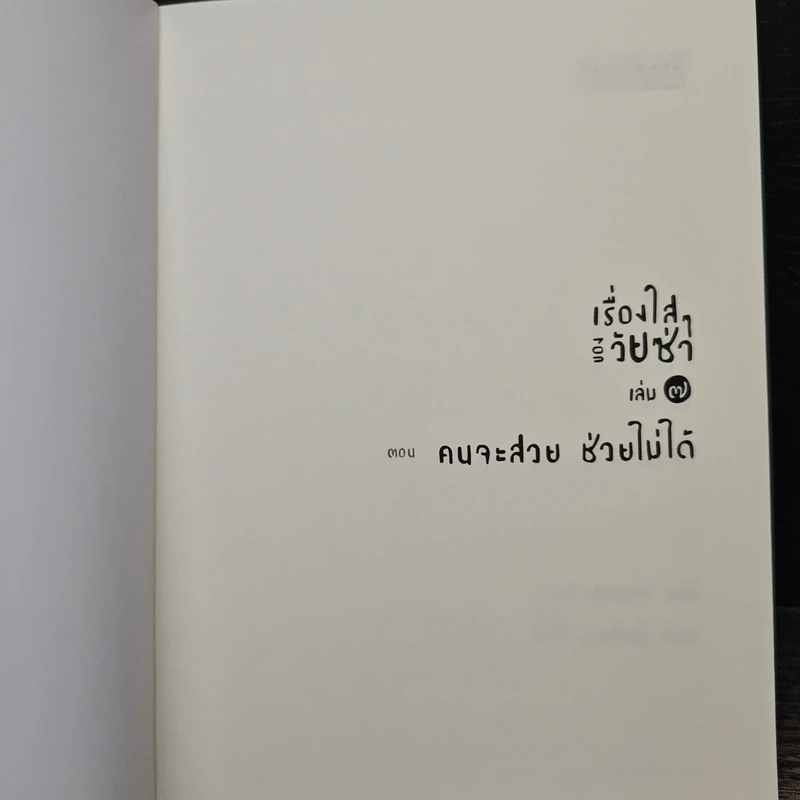 เรื่องใสๆ
ของ วัยซ่า
เล่ม ๗
ตอน คนจะสวย ช่วยไม่ได้